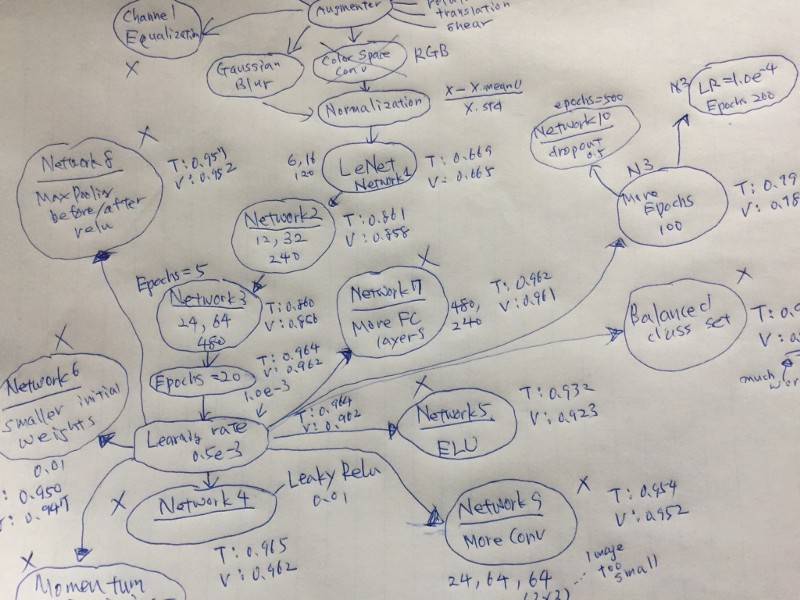 Channel
Equalization
X
Augmenter
translation
shear
Gaussian
Blur
Color Space
Conv
RGB
Normalization
X - X.mean()
X.std
LeNet
Network1
6, 16
120
T: 0.669
V: 0.665
Network2
12, 32
240
T: 0.861
V: 0.858
Epochs = 5
Network3
24, 64
480
T: 0.860
V: 0.856
Epochs = 20
T: 0.964
V: 0.962
1.0e-3
Learning rate
0.5e-3
T: 0.964
V: 0.962
X
Network8
Max Pooling
before/after
relu
T: 0.957
V: 0.952
X
Network7
More FC
layers
480,
240
T: 0.962
V: 0.961
epochs=500
Network10
dropout
0.5
N3
More
Epochs
100
N3
LR=1.0e-4
Epoch 200
X
Balanced
class set
much
X
Network6
smaller initial
weights
0.01
: 0.950
: 0.947
X
Network5
ELU
T: 0.932
V: 0.923
X
Network4
Leaky Relu
0.01
T: 0.965
V: 0.962
X
Network9
More Conv
T: 0.954
V: 0.952
24, 64, 64
Image
too
small
X
Momentum